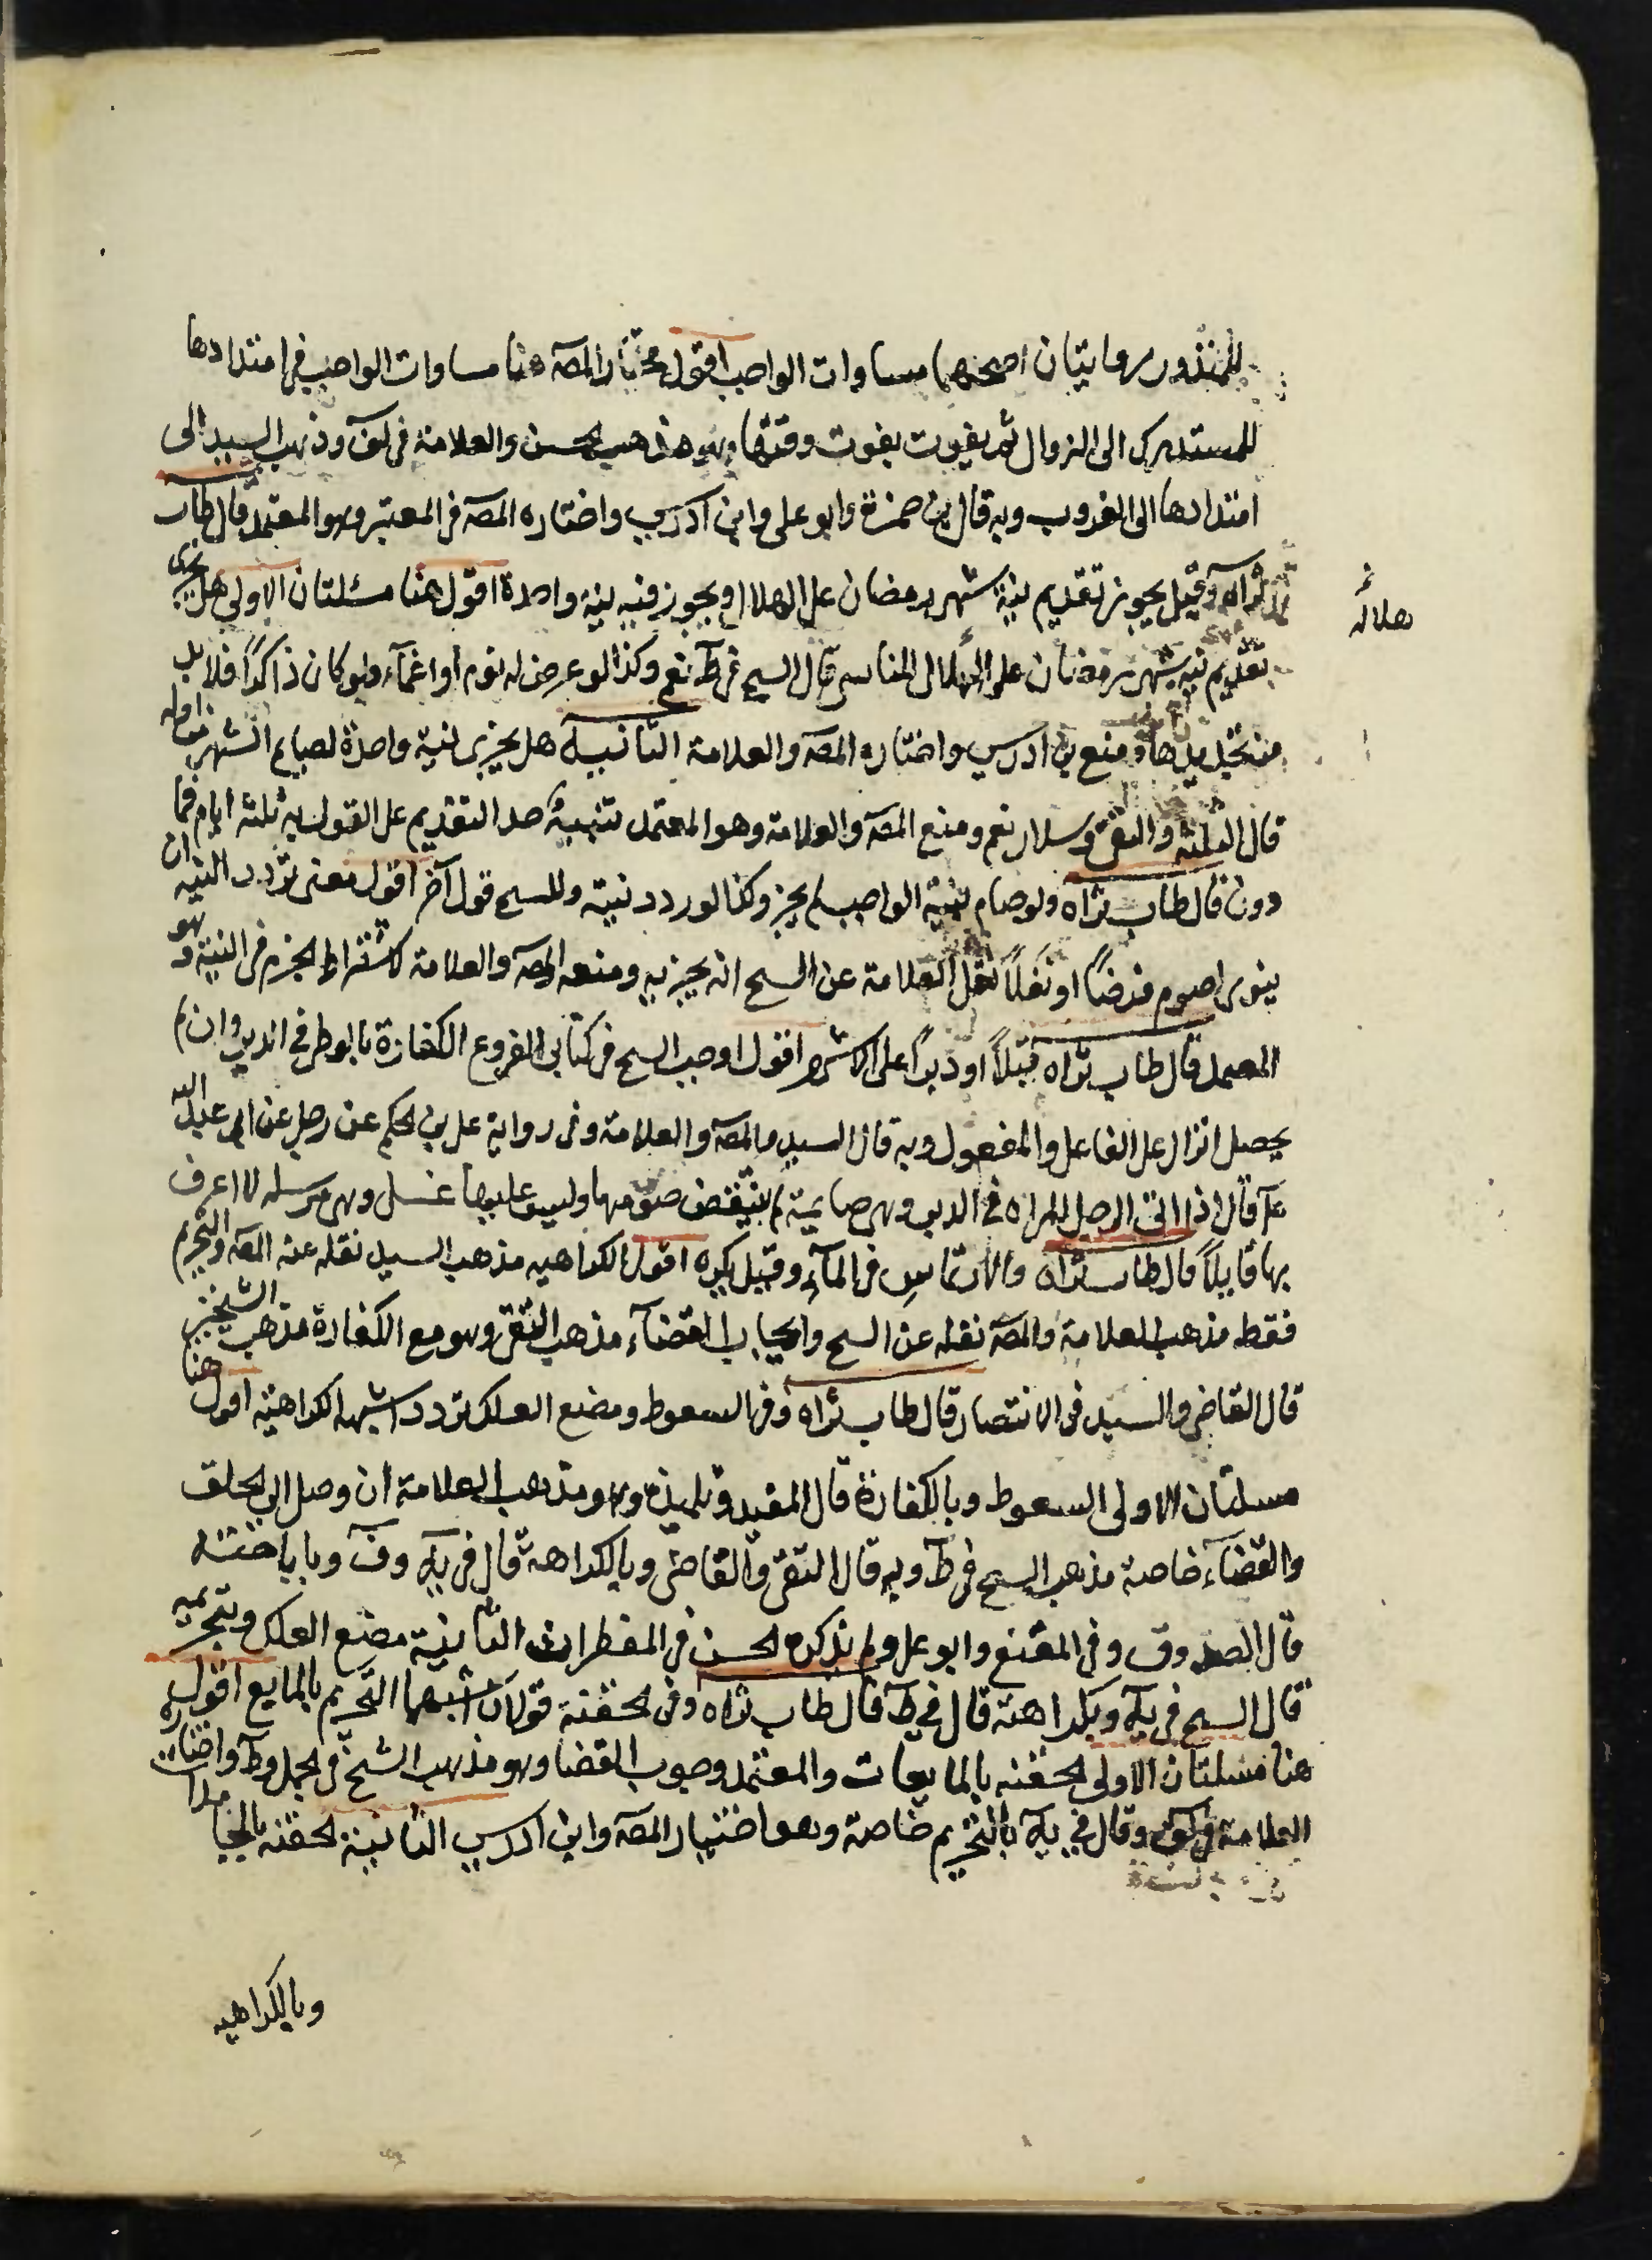 للمنذور روايتان اصحهما مساوات الواجب اقول مختار المصه هنا مساوات الواجب في امتدادها
للمستدرك الى الزوال ثم يفوت بفوت وقتها وهو مذهب الحسن والعلامة في لف وذهب السيد الى
امتدادها الى الغروب وبه قال بن حمزة وابو على وابن ادريس واختاره المصه في المعتبر وهو المعتمد قال طاب
ثراه وقيل يجوز تقديم نية شهر رمضان على الهلال ويجوز فيه نية واحدة اقول هنا مسئلتان الاولى هل يجزى
تقديم نية شهر رمضان على الهلال للناسى قال الشيخ في ط نعم وكذا لو عرض له نوم او اغماء ولو كان ذاكرًا فلا بد
من تجديدها ومنع بن ادريس واختاره المصه والعلامة الثانية هل يجزى نية واحدة لصيام الشهر من اوله
قال الثلثه والتقى وسلار نعم ومنع المصه والعلامة وهو المعتمد تنبيه حد التقديم على القول به ثلثة ايام فما
دون قال طاب ثراه ولو صام بنية الواجب لم يجز وكذا لو ردد نيته وللشيخ قول آخر اقول معنى تردد النية ان
ينوى اصوم فرضًا او نفلًا نقل العلامة عن الشيخ انه يجزيه ومنعه المصه والعلامة لاشتراط الجزم في النية وهو
المعتمد قال طاب ثراه قبلًا او دبرًا على الاشهر اقول اوجب الشيخ في كتابى الفروع الكفارة بالوطى في الدبر وان لم
يحصل انزال على الفاعل والمفعول وبه قال السيد والمصه والعلامة وفى رواية على بن الحكم عن رجل عن ابى عبد الله
ع قال اذا اتى الرجل المراه في الدبر وهى صايمة لم ينتقض صومها وليس عليها غسل وهى مرسله لا اعرف
بها قايلًا قال طاب ثراه والارتماس في المآء وقيل يكره اقول الكراهيه مذهب السيد نقله عنه المصه والتحريم
فقط مذهب العلامة والمصه نقله عن الشيخ وايجاب القضآء مذهب التقى وهو مع الكفارة مذهب الشيخين
قال القاضى والسيد فى الانتصار قال طاب ثراه وفى السعوط ومضغ العلك تردد اشبهه الكراهية اقول هنا
مسلتان الاولى السعوط وبالكفارة قال المفيد وتلميذه وهو مذهب العلامة ان وصل الى الحلق
والقضآء خاصة مذهب الشيخ في ط وبه قال التقى والقاضى وبالكراهة قال في يه وف وباباحته
قال الصدوق وفى المقنع وابو على ولم يذكره الحسن في المفطرات الثانية مضغ العلك وبتحريمه
قال الشيخ في يه وبكراهته قال في ط قال طاب ثراه وفى الحقنة قولان اشبهها التحريم بالمايع اقول
هنا مسلتان الاولى الحقنه بالمايعات والمعتمد وجوب القضا وهو مذهب الشيخ في الجمل وط واختاره
العلامة في لف وقال في يه بالتحريم خاصة وهو اختيار المصه وابن ادريس الثانية الحقنه بالجامدات
وبالكراهيه